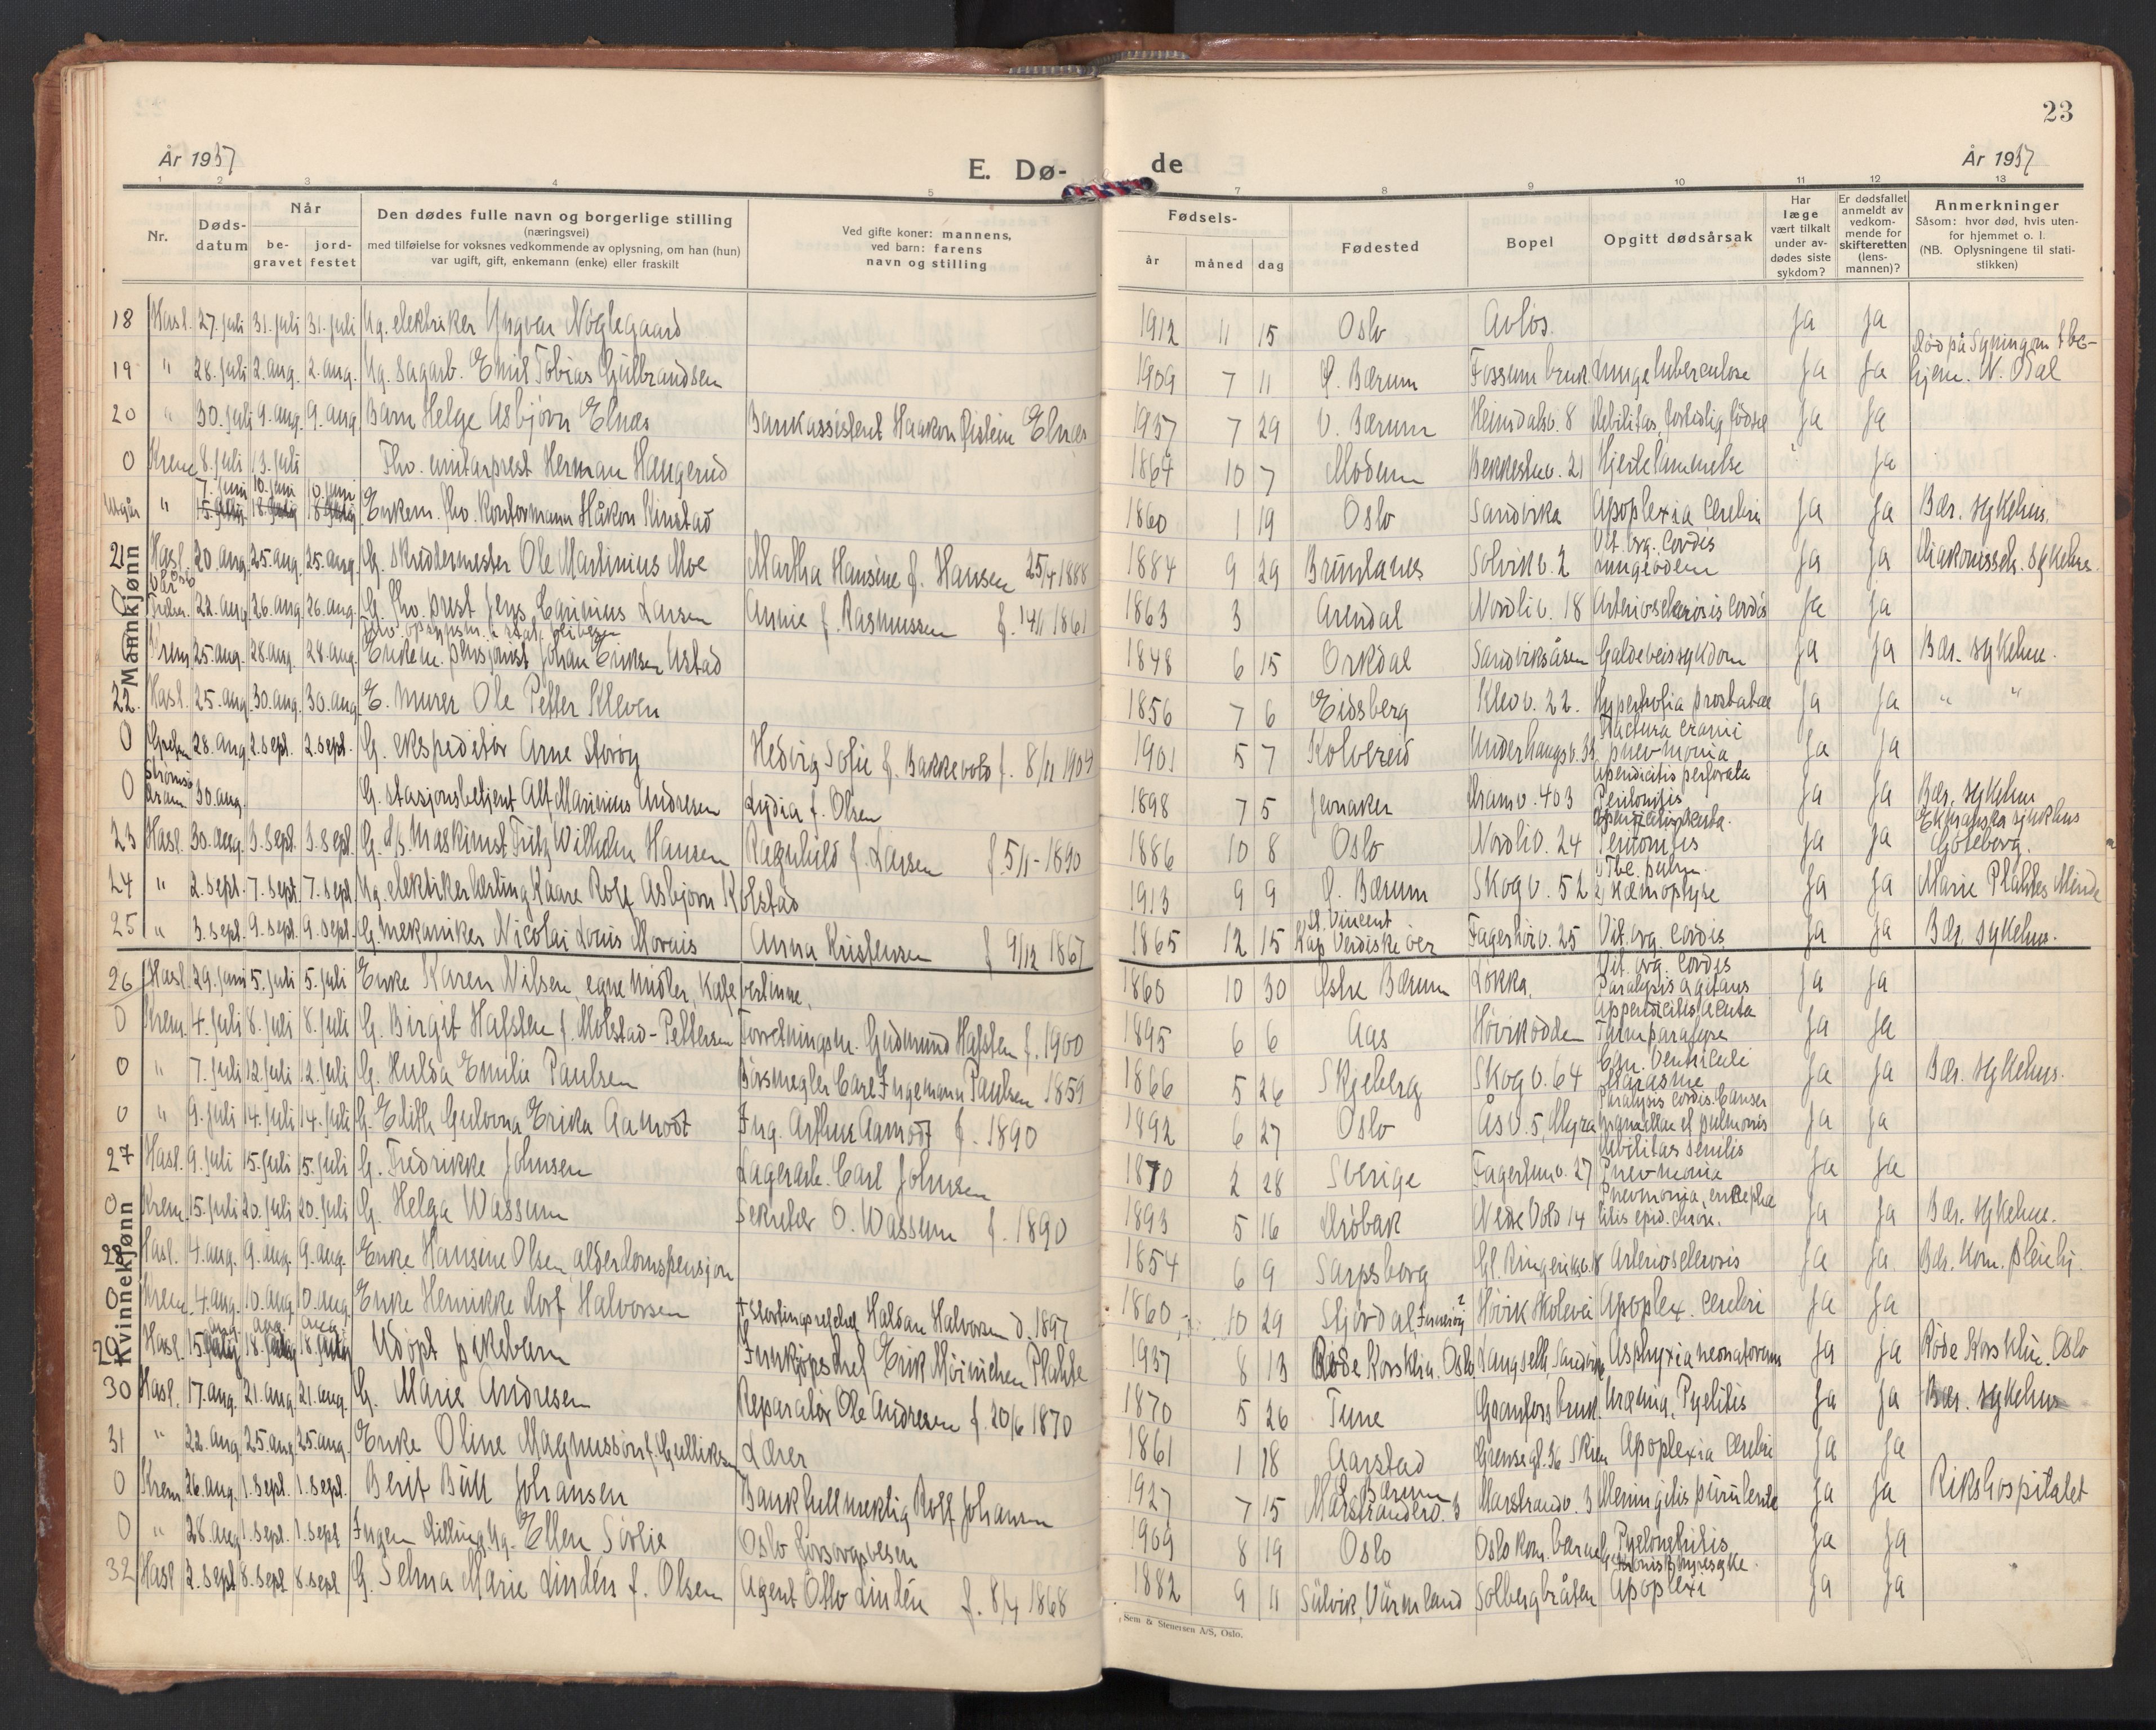 23
År 1937
E. Dø-
de
År 1937
1 2 3 4 5 7 8 9 10 11 12 13
Nr.
Døds-
datum
Når
be-
gravet
jord-
festet
Den dødes fulle navn og borgerlige stilling
(næringsvei)
med tilføielse for voksnes vedkommende av oplysning, om han (hun)
var ugift, gift, enkemann (enke) eller fraskilt
Ved gifte koner: mannens,
ved barn: farens
navn og stilling
Fødsels-
år måned dag
Fødested
Bopel
Opgitt dødsårsak
Har
læge
vært tilkalt
under av-
dødes siste
sykdom?
Er dødsfallet
anmeldt av
vedkom-
mende for
skifteretten
(lens-
mannen)?
Anmerkninger
Såsom: hvor død, hvis uten-
for hjemmet o. l.
(NB. Oplysningene til stati-
stikken)
Mannkjønn
18 Hasl. 27. juli 31. juli 31. juli Ug. elektriker Yngvar Nøglegaard 1912 11 15 Oslo Avløs. Ja Ja
19 " 28. juli 2. aug. 2. aug. Ug. sagarb. Emil Tobias Gulbrandsen 1909 7 11 Ø. Bærum Fossum bruk Lungetuberculose Ja Ja hjem. N. Odal
20 " 30. juli 9. aug. 9. aug. Barn Helge Asbjørn Elnæs Bankassistent Haakon Øistein Elnæs 1937 7 29 V. Bærum Heimdalsv. 8 Debilitas, fortidlig fødsel Ja Ja
0 Krem 8. juli 13. juli Fhv. emitarprest Herman Haugerud 1864 10 7 Modum Bekkestuv. 21 Hjertelammelse " Ja
7. juni 10. juni 10. juni
Utgår " Enkem. fhv. kontormann Håkon Rinstad 1860 1 19 Oslo Sandvika Apoplexia Cerebri Ja Ja Bær. sykehus.
21 Hasl. 20. aug. 25. aug. 25. aug. G. skreddermester Ole Martinius Moe Martha Hansine f. Hansen 25/4 1888 1884 9 29 Brunlanes Solvikv. 2 Vit. org. Cordis
Lungeødem Ja Ja Diakonisseh. Sykehus.
22. aug. 26. aug. 26. aug. G. fhv. prest Jens Carinius Larsen Annie f. Rasmussen f. 14/1 1861 1863 3 Arendal Nordliv. 18 Arteriosclerosis Cordis Ja Ja
Krem. 25. aug. 28. aug. 28. aug. Enkem. pensjonist Johan Eriksen Ustad 1848 6 15 Orkdal Sandviksåsen Galdeveissykdom Ja Ja Bær. sykehus.
22. Hasl. 25. aug. 30. aug. 30. aug. E. murer Ole Petter Kleven 1856 7 6 Eidsberg Kleov. 22. Hypertrofia prostatae Ja Ja " "
0 Grefsen 28. aug. 2. sept. 2. sept. G. ekspeditør Arne Storøy Hedvig Sofie f. Bakkevold f. 8/11 1904 1901 5 7 Kolvereid Underhaugsv. 3 Fractura cranii
pnevmonia Ja Ja
0 Strømsø
Dram. 30. aug. G. stasjonsbetjent Alf Marinius Andresen Lydia f. Olsen 1898 7 5 Jevnaker Dramv. 403 Apendicitis perforata
Peritonitis Ja Ja Bær. sykehus
23 Hasl. 30. aug. 3. sept. 3. sept. G. d/s maskinist Fritz Wilhelm Hansen Ragnhild f. Larsen f. 5/1-1890 1886 10 8 Oslo Nordliv. 24 Apendicitis acuta.
Peritonitis Ja Ja Göteborg.
24 " 2. sept. 7. sept. 7. sept. Ug. elektrikerlærling Kaare Rolf Asbjørn Kolstad 1913 9 9 Ø. Bærum Skogv. 52 Tbc. pulm.
Hæmoptyse Ja Ja Marie Plahtes Minde
25 " 3. sept. 9. sept. 9. sept. G. mekaniker Nicolai Louis Morais Anna Kristensen f 9/12 1867 1865 12 15 St. Vincent
Kap Verdiske øer Fagerhøiv. 25 Vit. org. cordis Ja Ja Bær. sykehus.
Kvinnekjønn
26 Hasl. 29. juni 5. juli 5. juli Enke Karen Nilsen, egne midler, kafevertinne. 1860 10 30 Østre Bærum Løkka. Vit. org. Cordis
Paralysis agitans Ja Ja
0 Krem. 4. juli 8. juli 8. juli G. Birgit Hafsten f. Molstad-Pettersen Forretningsm. Gudmund Hafsten f. 1900 1895 6 6 Aas Høvikodden Appendicitis acuta
Tarmparalyse Ja Ja
0 " 7. juli 12. juli 12. juli G. Hulda Emilie Paulsen Børsmegler Carl Ingemann Paulsen 1859 1866 5 26 Skjeberg Skogv. 64 Can. Ventriculi
Marasme Ja Ja Bær. sykehus.
0 " 9. juli 14. juli 14. juli G. Edith Gulovna Erika Aamodt Ing. Arthur Aamodt f. 1890 1892 6 27 Oslo Åsv. 5, Myra Paralysis cordis. Cancer
mamillae et pulmonis Ja Ja
27 Hasl. 9. juli 15. juli 15. juli G. Fredrikke Johnsen Lagerarb. Carl Johnsen 1870 2 28 Sverige Fagertunv. 27 Debilitas senilis
Pnevmonia Ja Ja
0 Krem. 15. juli 20. juli 20. juli G. Helga Wassum Sekretær O. Wassum f. 1890 1893 5 16 Drøbak Nedre Vold 14 Pnevmonia, encepha
litis epid. chron. Ja Ja Bær. sykehus.
28 Hasl. 4. aug. 9. aug. 9. aug. Enke Hansine Olsen, alderdomspensjon 1854 6 9 Sarpsborg Gl. Ringeriksv. Arteriosclerosis Ja Ja Bær. Kom. pleiehj.
0 Krem 4. aug. 10. aug. 10. aug. Enke Henrikke Dorf Halvorsen Haldan Halvorsen d. 1897 1860 10 29 Stjørdal, Høvik Skolevei Apoplex. Cerebri Ja Ja
aug. aug. aug.
29 Hasl. 15. 18. 18. Udøpt pikebarn Innkjøpschef Erik Mørinichen Plahte 1937 8 13 Røde Korsklin. Oslo Asphyxia neonatorum Ja Ja Røde Korsklin. Oslo
30 Hasl. 17. aug. 21. aug. 21. aug. G. Marie Andresen Reparatør Ole Andresen f. 20/6 1870 1870 5 26 Tune Granfoss bruk. Uræmia, Pyelitis Ja Ja Bær. sykehus
31 " 22. aug. 25. aug. 25. aug. Enke Oline Magnusson f. Gulliksen Lærer 1861 1 18 Aarstad Grensegt. 36 Skien Apoplexia Cerebri Ja Ja
0 Krem. 26. aug. 1. sept. 1. sept. Berit Bull Johansen Bankfullmektig Rolf Johansen 1927 7 15 Bærum
Marstranderv. 3 Marstrandv. 3 Meningitis purulenta Ja Ja Rikshospitalet
0 " 28. aug 1. sept. 1. sept Ingen stilling Ug. Ellen Sørlie Oslo forsorgsvesen 1909 8 19 Oslo Oslo kom. Pyelonefritis
kronisk nyresyke. Ja Ja
32 Hasl 2. sept 8. sept 8. sept G. Selma Marie Lindén f. Olsen Agent Otto Lindén f. 8/4 1868 1882 9 11 Sülvik, Värmland Solbergbråten Apoplexi Ja Ja
Sem & Stenersen A/S, Oslo.